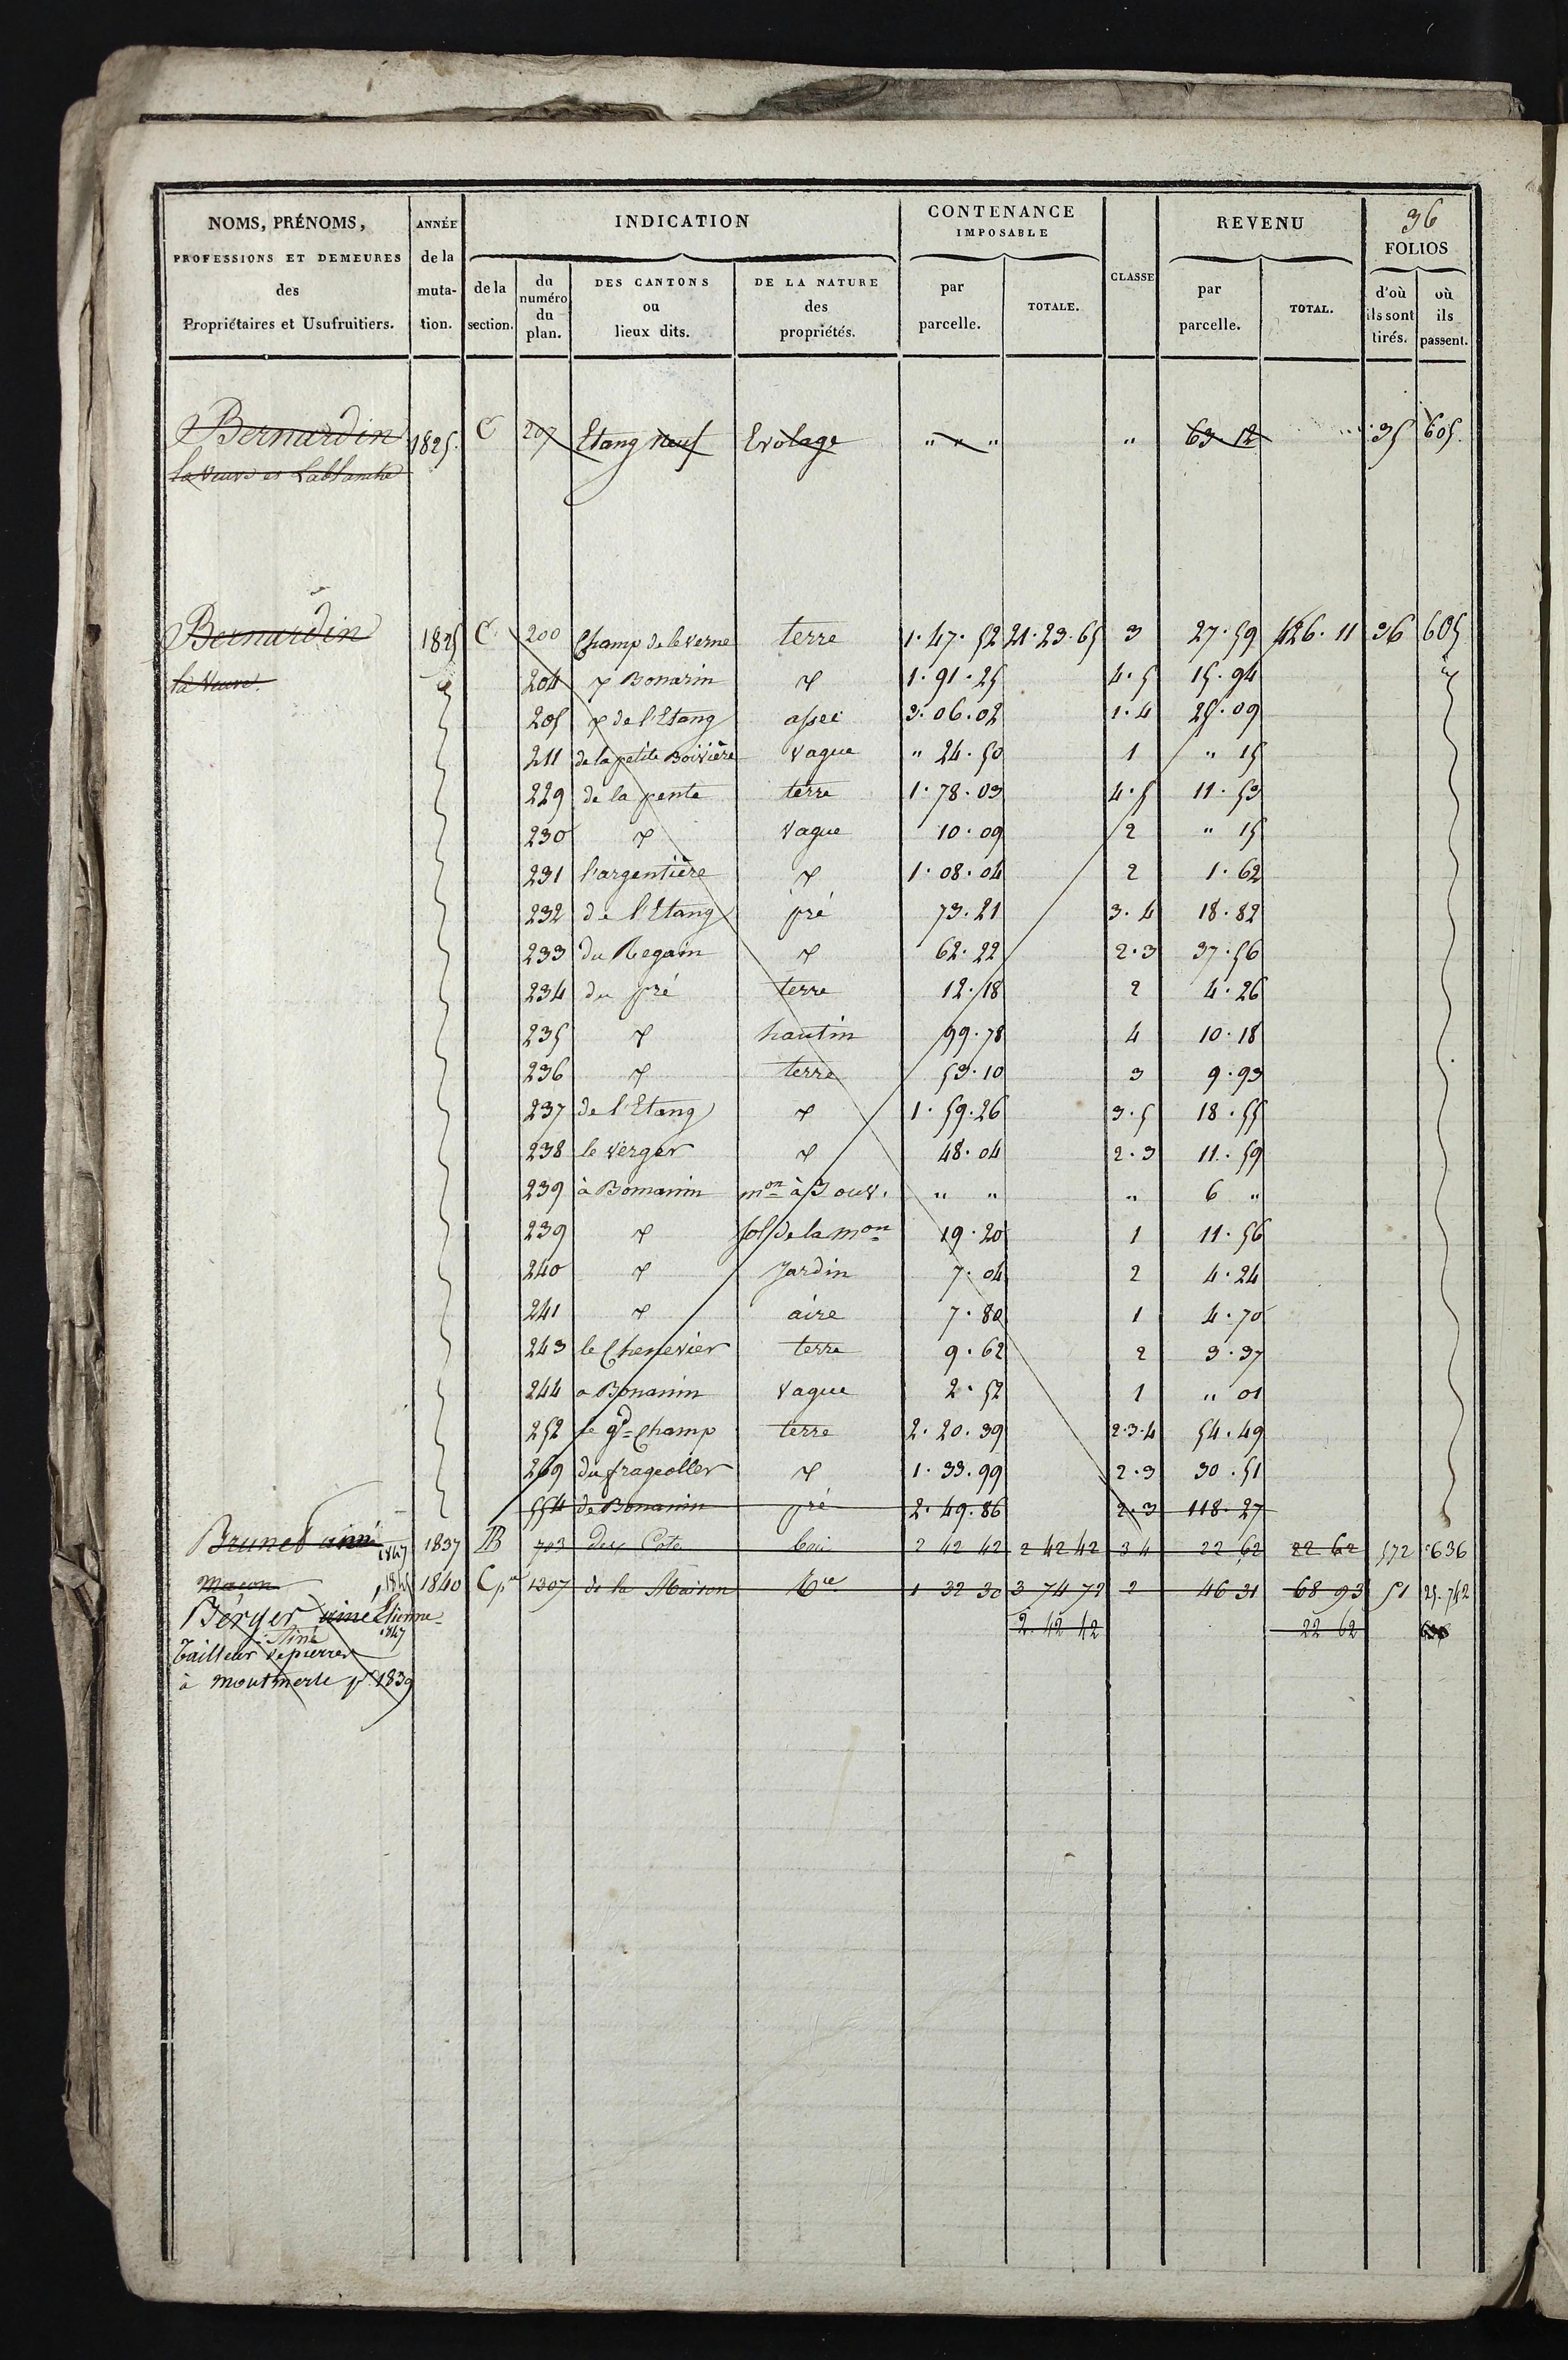 36
NOMS, PRÉNOMS, PROFESSIONS ET DEMEURES des Propriétaires et Usufruitiers.
ANNÉE de la muta- tion.
INDICATION
de la section.
du numéro du plan.
DES CANTONS ou lieux dits.
DE LA NATURE des propriétés.
CONTENANCE IMPOSABLE
par parcelle.
TOTALE.
CLASSE
REVENU
par parcelle.
TOTAL.
FOLIOS
d'où ils sont tirés.
où ils passent.
Bernardin 1825 C 207 Etang neuf Evolage " " " " 63 12 35 605
la Veuve et Lablanche
Bernardin 1825 C 200 Champ de le verne terre 1.47.52 21.23.65 3 27.59 426.11 36 605
la Veuve. 204 Bonarin 1.91.25 4.5 15.94
205 de l'Etang assec 3.06.02 1.4 25.09
211 de la petite Boivière Vague " 24.50 1 " 15
229 de la pente terre 1.78.03 4.5 11.53
230 Vague 10.09 2 " 15
231 l'argentière 1.08.04 2 1.62
232 de l'Etang pré 73.21 3.4 18.82
233 du Regain 62.22 2.3 37.56
234 du pré terre 12.18 2 4.26
235 hautin 99.78 4 10.18
236 terre 53.10 3 9.93
237 de l'Etang 1.59.26 3.5 18.55
238 le verger 48.04 2.3 11.59
239 à Bomanin mon à 3 ouv. " " " 6 "
239 sol de la mon 19.20 1 11.56
240 Jardin 7.04 2 4.24
241 aire 7.80 1 4.70
243 le Chenevier terre 9.62 2 3.37
244 a Bonanin Vague 2.52 1 " 01
252 le gd Champ terre 2.20.39 2.3.4 54.49
269 du frageoller 1.33.99 2.3 30.51
554 de Bonanin pré 2.49.86 2.3 118.27
Brunet ainé 1847 1837 B 703 des Cote bois 2 42 42 2 42 42 3 4 22 62 22 62 572 636
maçon 1840 Cp 1307 de la Maison 1 32 30 3 74 72 2 46 31 68 93 51 25.742
Berger ainé Etienne 2 42 42 22 62
1847
Tailleur de pierres
à montmerle pr 1839